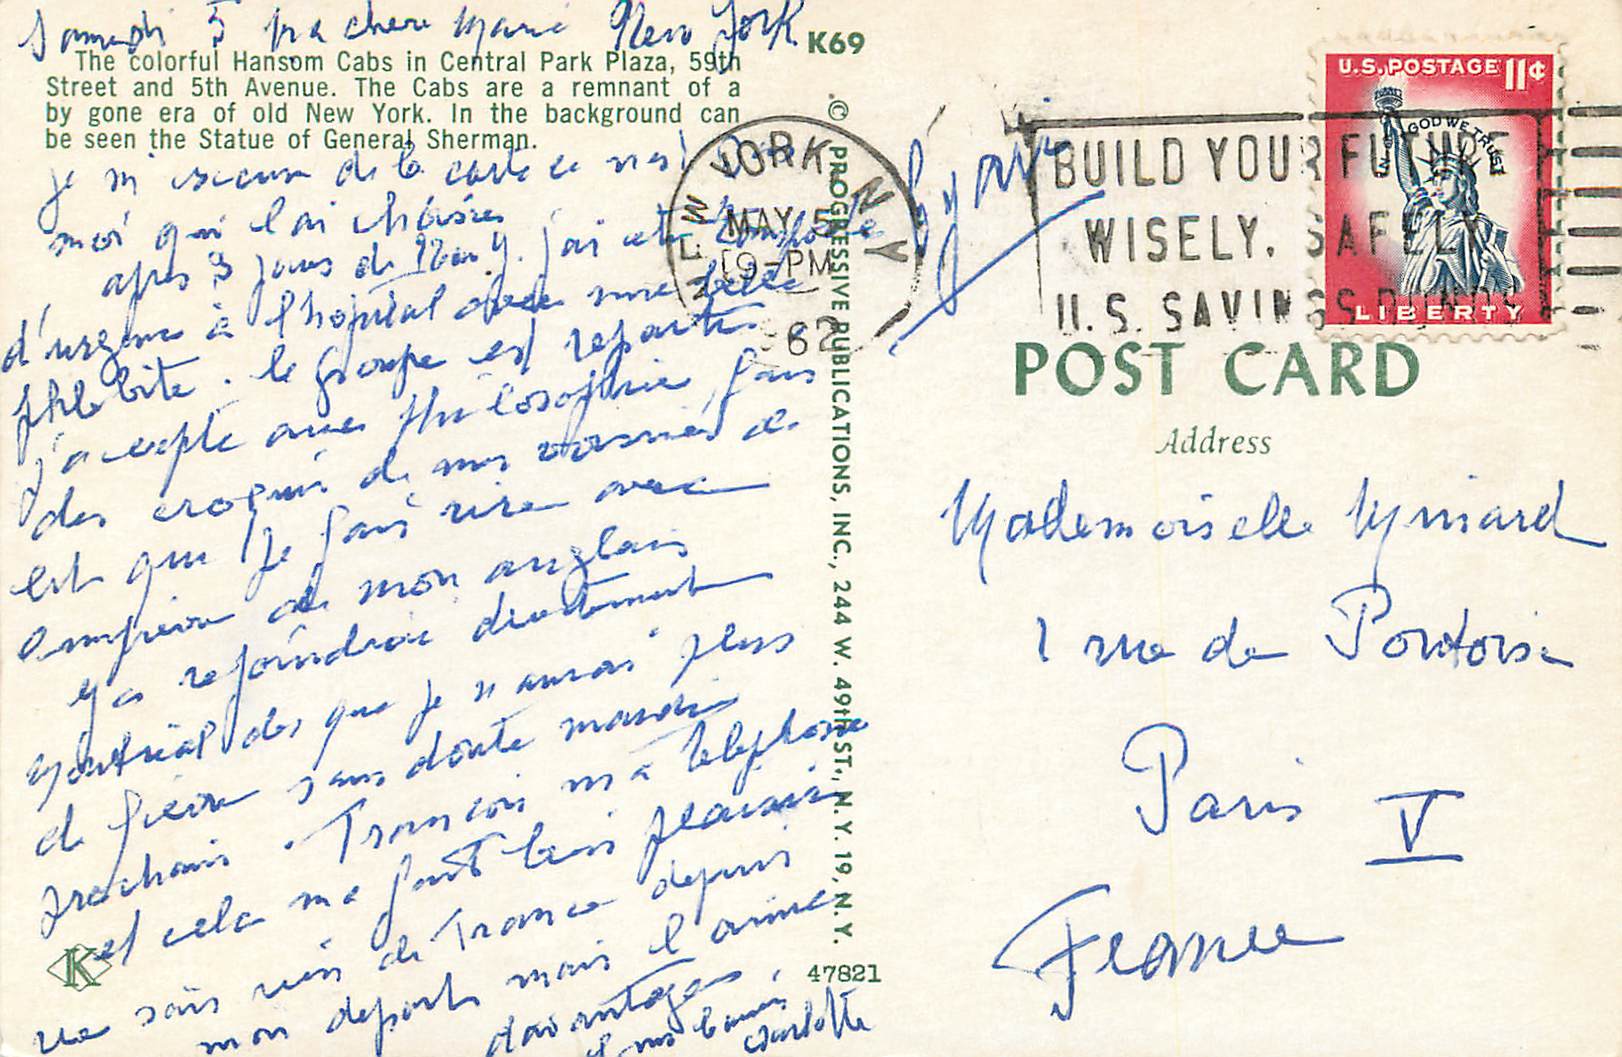 Samedi 5 ma chere Marie New York
K69
The colorful Hansom Cabs in Central Park Plaza, 59th
Street and 5th Avenue. The Cabs are a remnant of a
by gone era of old New York. In the background can
be seen the Statue of General Sherman.
je m'excuse de la carte ce n'est pas
moi qui l'ai choisie
après 3 jours de New Y. j'ai été transportée
d'urgence à l'hôpital avec une belle
phlébite. le groupe est reparti
j'accepte avec philosophie, fais
des croquis de mes voisines de
est que je fais rire avec
de mon anglais
rejoindrai directement
Montréal dès que je n'aurai plus
de fièvre sans doute mardi
prochain. François m'a téléphoné
et cela m'a fait bien plaisir
ne sais rien de France depuis
mon départ mais l'aime
davantage.
Charlotte
© PROGRESSIVE PUBLICATIONS, INC., 244 W. 49th ST., N. Y. 19, N. Y.
47821
K
NEW YORK, N Y
MAY 5
19-PM
62
BUILD YOUR FUTURE
WISELY, SAFELY
U.S. SAVINGS BONDS
U.S. POSTAGE 11¢
IN GOD WE TRUST
LIBERTY
POST CARD
Address
Mademoiselle Miniard
1 rue de Pontoise
Paris V
France